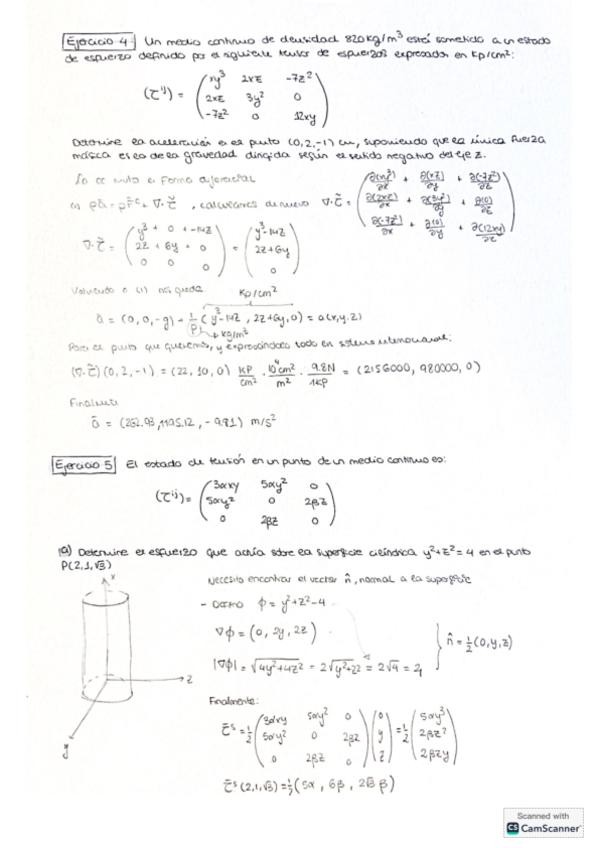 Ejercicio 4 Un medio continuo de densidad 820 kg/m³ está sometido a un estado
de esfuerzo definido por el siguiente tensor de esfuerzos expresados en Kp/cm²:
(τ^ij) = ( xy³ 2xz -7z²
2xz 3y² 0
-7z² 0 12xy )
Determine la aceleración en el punto (0,2,-1) cm, suponiendo que la única fuerza
másica es la de la gravedad dirigida según el sentido negativo del eje z.
forma diferencial
, calculamos de nuevo ∇·τ̃ = ( ∂(xy³)/∂x + ∂(xz)/∂y + ∂(-7z²)/∂z
∂(2xz)/∂x + ∂(3y²)/∂y + ∂(0)/∂z
∂(-7z²)/∂x + ∂(0)/∂y + ∂(12xy)/∂z )
∇·τ̃ = ( y³ + 0 + -14z
2z + 6y + 0
0 0 0 ) = ( y³-14z
2z+6y
0 )
Volviendo a (1) nos queda Kp/cm²
a = (0,0,-g) + 1/ρ (y³-14z, 2z+6y, 0) = a(x,y,z)
kg/m³
Para el punto que queremos, y expresándolo todo en sistema internacional:
(∇·τ̃)(0,2,-1) = (22,10,0) KP/cm² · 10⁴cm²/m² · 9.8N/1KP = (2156000, 980000, 0)
Finalmente
ā = (262.93, 1195.12, -9.81) m/s²
Ejercicio 5 El estado de tensión en un punto de un medio continuo es:
(τ^ij) = ( 3αxy 5αy² 0
5αy² 0 2βz
0 2βz 0 )
(a) Determine el esfuerzo que actúa sobre la superficie cilíndrica y²+z²=4 en el punto
P(2,1,√3)
x
z
y
Necesito encontrar el vector n̂, normal a la superficie
- φ = y²+z²-4
∇φ = (0, 2y, 2z)
|∇φ| = √4y²+4z² = 2√y²+z² = 2√4 = 4
n̂ = ½(0,y,z)
Finalmente:
τ̄ˢ = ½ ( 3αxy 5αy² 0
5αy² 0 2βz
0 2βz 0 ) ( 0
y
z ) = ½ ( 5αy³
2βz²
2βzy )
τ̄ˢ(2,1,√3) = ½ (5α, 6β, 2√3 β)
Scanned with
CS CamScanner